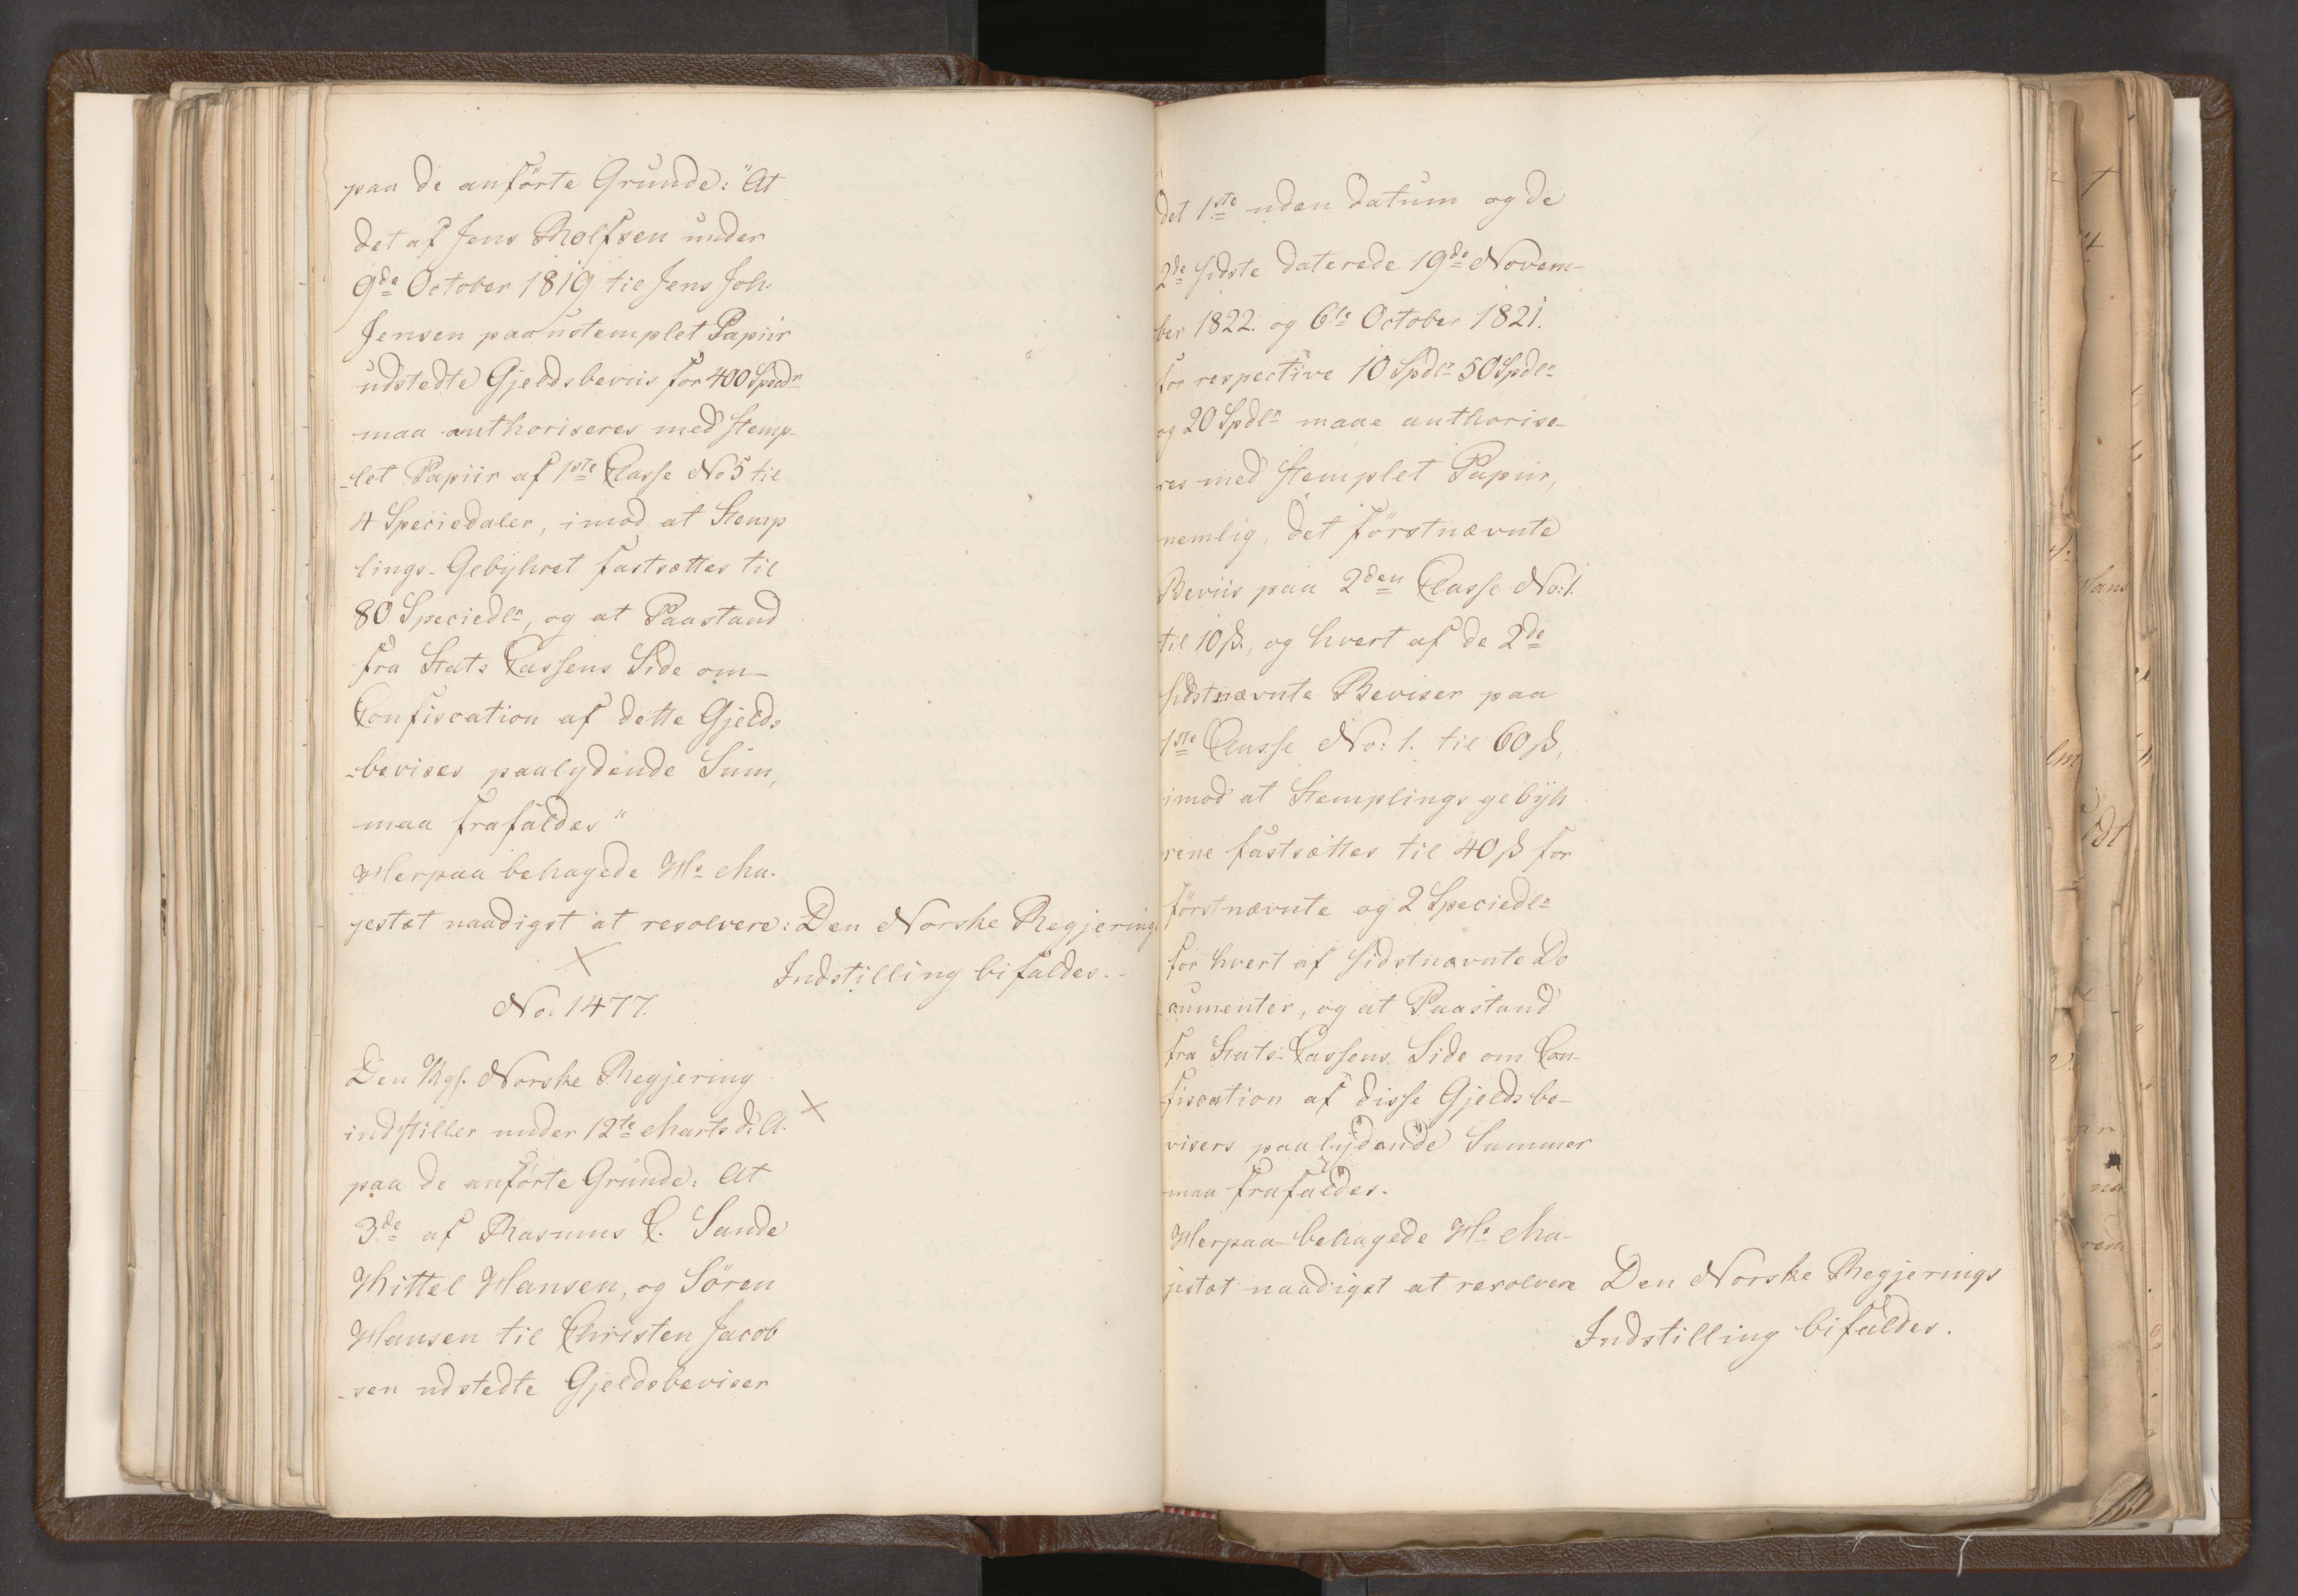 paa de anförte Grunde: "At
det af Jens Rolfsen under
9de October 1819 til Jens Joh.
Jensen paa ustemplet Papiir
udstedte Gjeldsbeviis for 400 Specdr
maa authoriseres med stemp-
-let Papiir af 1ste Classe No 5 til
4 Speciedaler, imod at Stemp
lings-Gebyhret fastsættes til
80 Speciedlr, og at Paastand
fra Stats Cassens Side om-
Confiscation af dette Gjelds
-bevises paalydende Sum,
maa frafaldes"
Herpaa behagede Hs Ma-
jestæt naadigst at resolvere: Den Norske Regjerings
Indstilling bifaldes.-
No: 1477.
Den Kgl. Norske Regjering
indstiller under 12te Marts d: A:
paa de anförte Grunde: At
3de af Rasmus C. Sande
Kittel Hansen, og Sören
Hansen til Christen Jacob
-sen udstedte Gjeldsbeviser
det 1ste uden datum og de
2de sidste daterede 19de Novem-
ber 1822. og 6te October 1821.
for respective 10 Spdlr 50 Spdlr
og 20 Spdlr maae authorise-
res med stemplet Papiir,
nemlig det förstnævnte
Beviis paa 2den Classe No: 1.
til 10 ß., og hvert af de 2de
sidstnævnte Beviser paa
1ste Classe No: 1. til 60 ß,
imod at Stemplings gebyh
rene fastsættes til 40 ß for
förstnævnte og 2 Speciedlr
for hvert af sidstnævnte Do
-cumenter, og at Paastand
fra Stats-Cassens Side om Con-
fiscation af disse Gjeldsbe-
visers paalydende Summer
maa frafaldes.
Herpaa behagede Hs Ma-
jestæt naadigst at resolvere Den Norske Regjerings
Indstilling bifaldes.